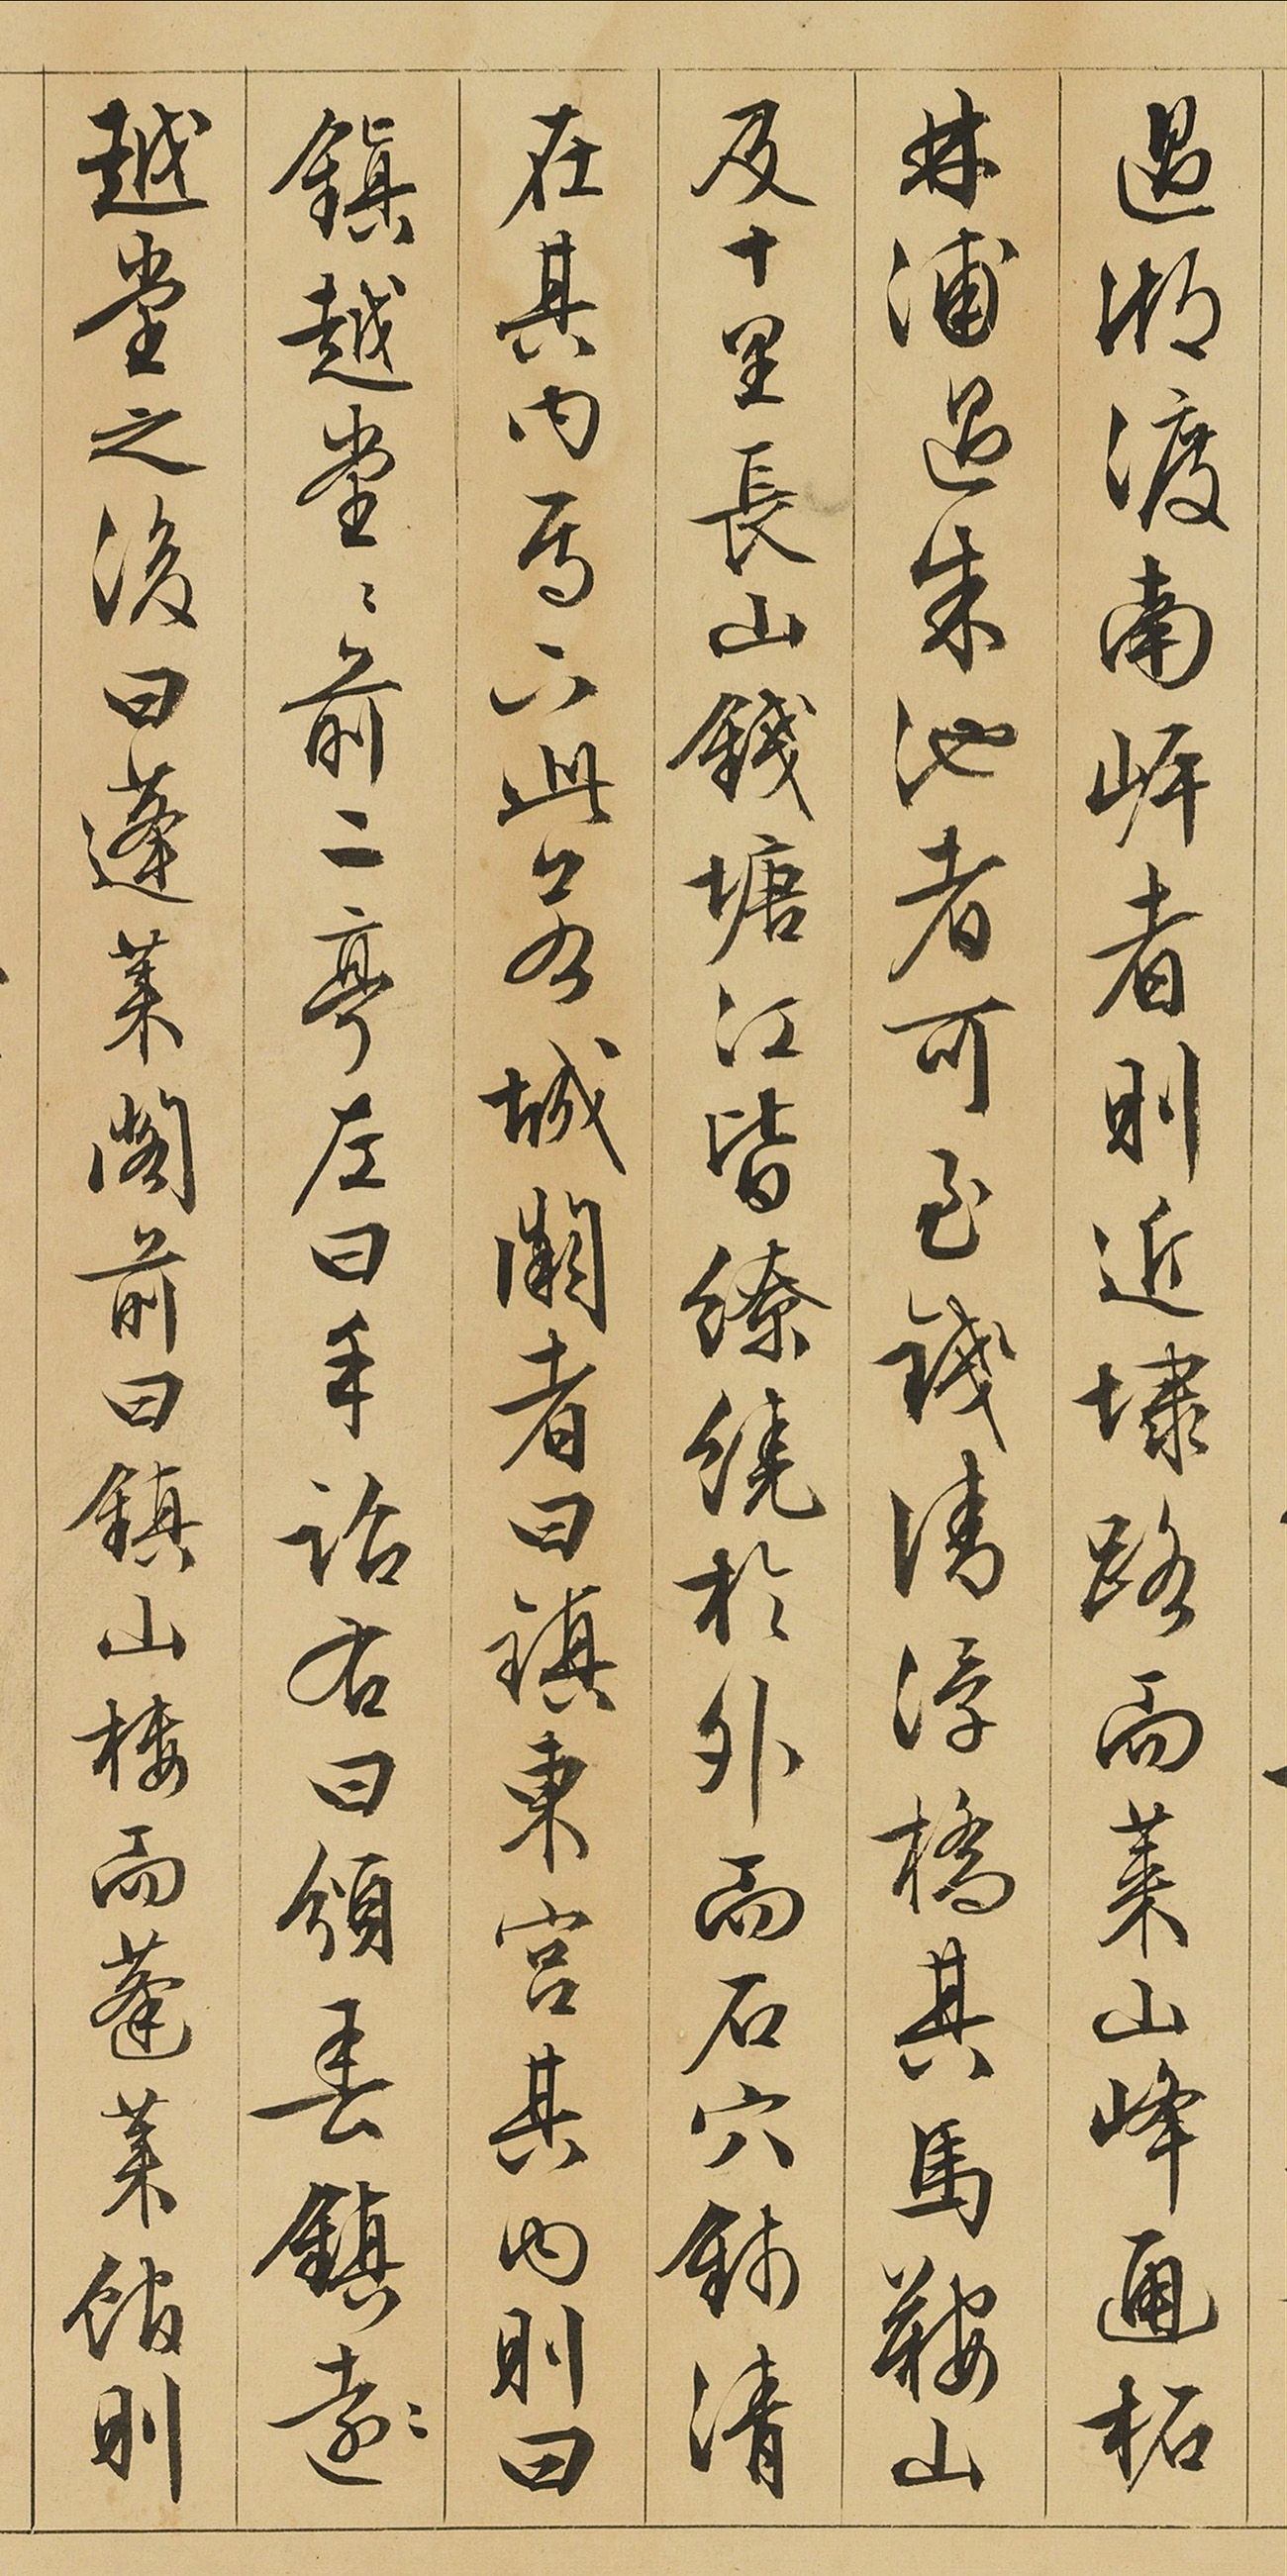 過浙渡南岸者則近埭路而萊山峰通柘
林浦過朱池者可至錢清浮橋其馬鞍山
及十里長山錢塘江皆繚繞於外而石穴錢清
在其内焉城闕者曰鎮東宮其内則曰
鎮越堂〻前二亭左曰手詔右曰頒春鎮遠〻
越堂之後曰蓬萊閣前曰鎮山樓而蓬萊館則